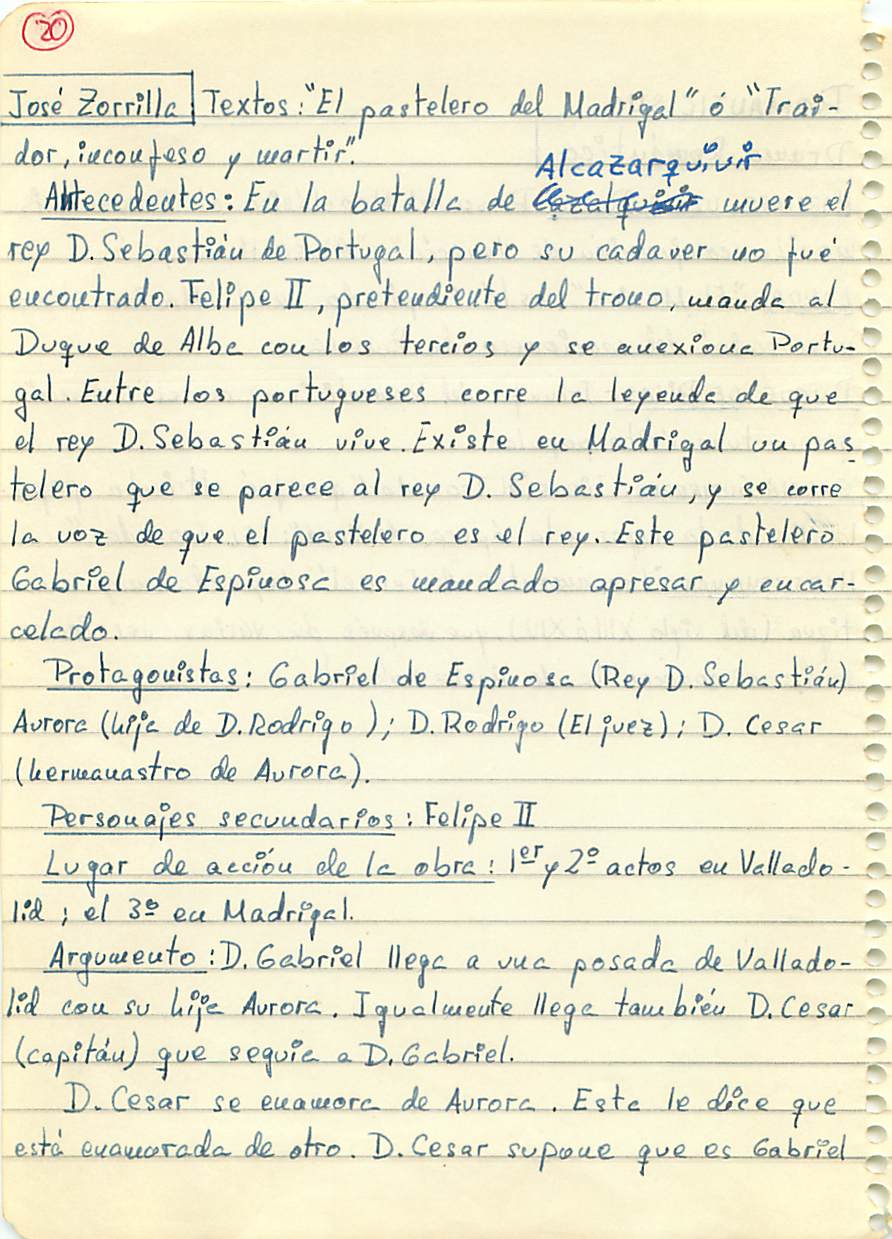 20
José Zorrilla Textos: "El pastelero del Madrigal" ó "Trai-
dor, inconfeso y martir".
Alcazarquivir
Antecedentes: En la batalla de muere el
rey D. Sebastián de Portugal, pero su cadaver no fué
encontrado. Felipe II, pretendiente del trono, manda al
Duque de Alba con los tercios y se anexiona Portu-
gal. Entre los portugueses corre la leyenda de que
el rey D. Sebastián vive. Existe en Madrigal un pas-
telero que se parece al rey D. Sebastián, y se corre
la voz de que el pastelero es el rey. Este pastelero
Gabriel de Espinosa es mandado apresar y encar-
celado.
Protagonistas: Gabriel de Espinosa (Rey D. Sebastián)
Aurora (hija de D. Rodrigo); D. Rodrigo (El juez); D. Cesar
(hermanastro de Aurora).
Personajes secundarios: Felipe II
Lugar de acción de la obra: 1er y 2º actos en Vallado-
lid; el 3º en Madrigal.
Argumento: D. Gabriel llega a una posada de Vallado-
lid con su hija Aurora. Igualmente llega también D. Cesar
(capitán) que seguia a D. Gabriel.
D. Cesar se enamora de Aurora. Esta le dice que
está enamorada de otro. D. Cesar supone que es Gabriel